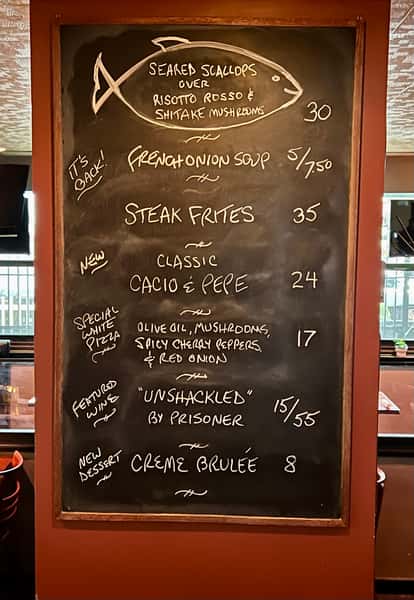 SEARED SCALLOPS
OVER
RISOTTO ROSSO &
SHITAKE MUSHROOMS 30
IT'S
BACK!
FRENCH ONION SOUP 5/7.50
STEAK FRITES 35
NEW
CLASSIC
CACIO E PEPE 24
SPECIAL
WHITE
PIZZA
OLIVE OIL, MUSHROOMS,
SPICY CHERRY PEPPERS,
& RED ONION 17
FEATURED
WINE
"UNSHACKLED"
BY PRISONER 15/55
NEW
DESSERT
CREME BRULÉE 8